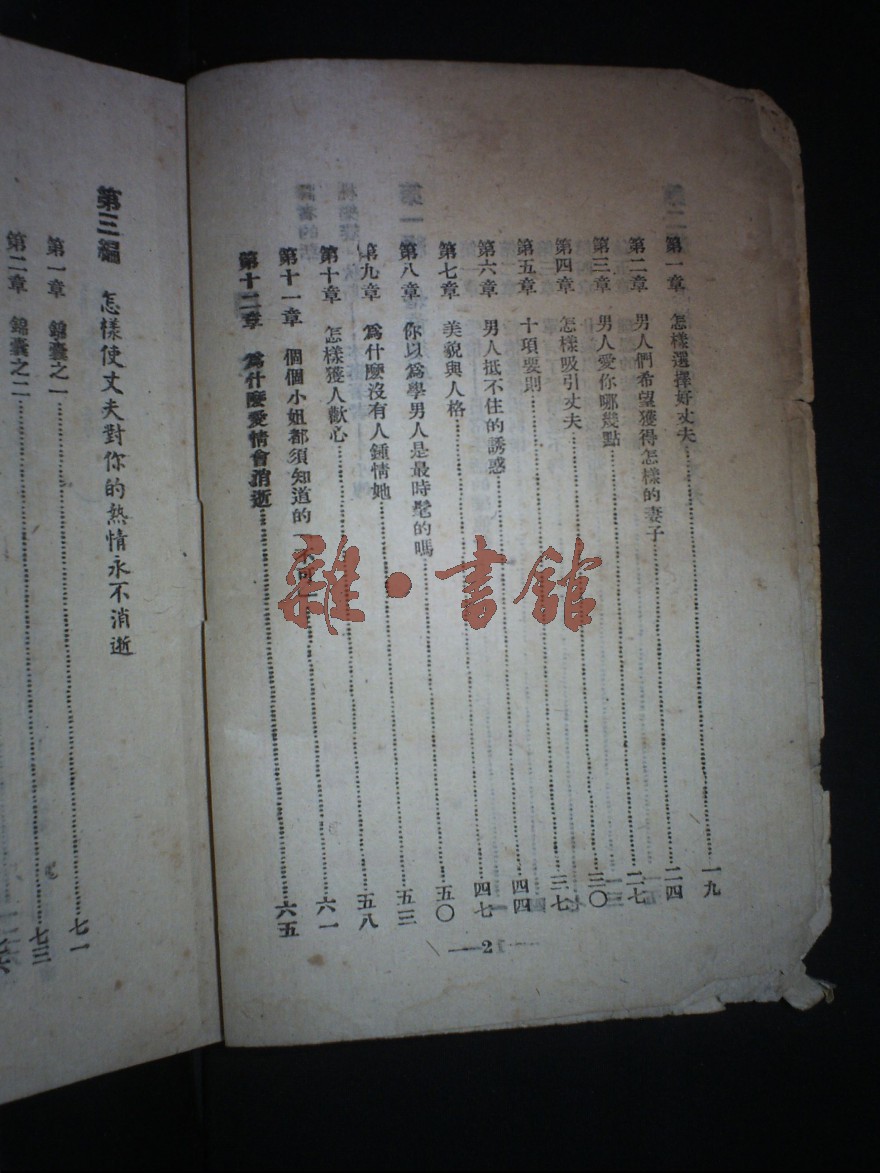 第一章 怎樣選擇好丈夫……一九
第二章 男人們希望獲得怎樣的妻子……二四
第三章 男人愛你哪幾點……二七
第四章 怎樣吸引丈夫……三〇
第五章 十項要則……三七
第六章 男人抵不住的誘惑……四四
第七章 美貌與人格……四七
第八章 你以爲學男人是最時髦的嗎……五〇
第九章 爲什麼沒有人鍾情她……五三
第十章 怎樣獲人歡心……五八
第十一章 個個小姐都須知道的「不可」……六一
第十二章 爲什麼愛情會消逝……六五
—2—
第三編 怎樣使丈夫對你的熱情永不消逝
第一章 錦囊之一……七一
第二章 錦囊之二……七三
雜·書館